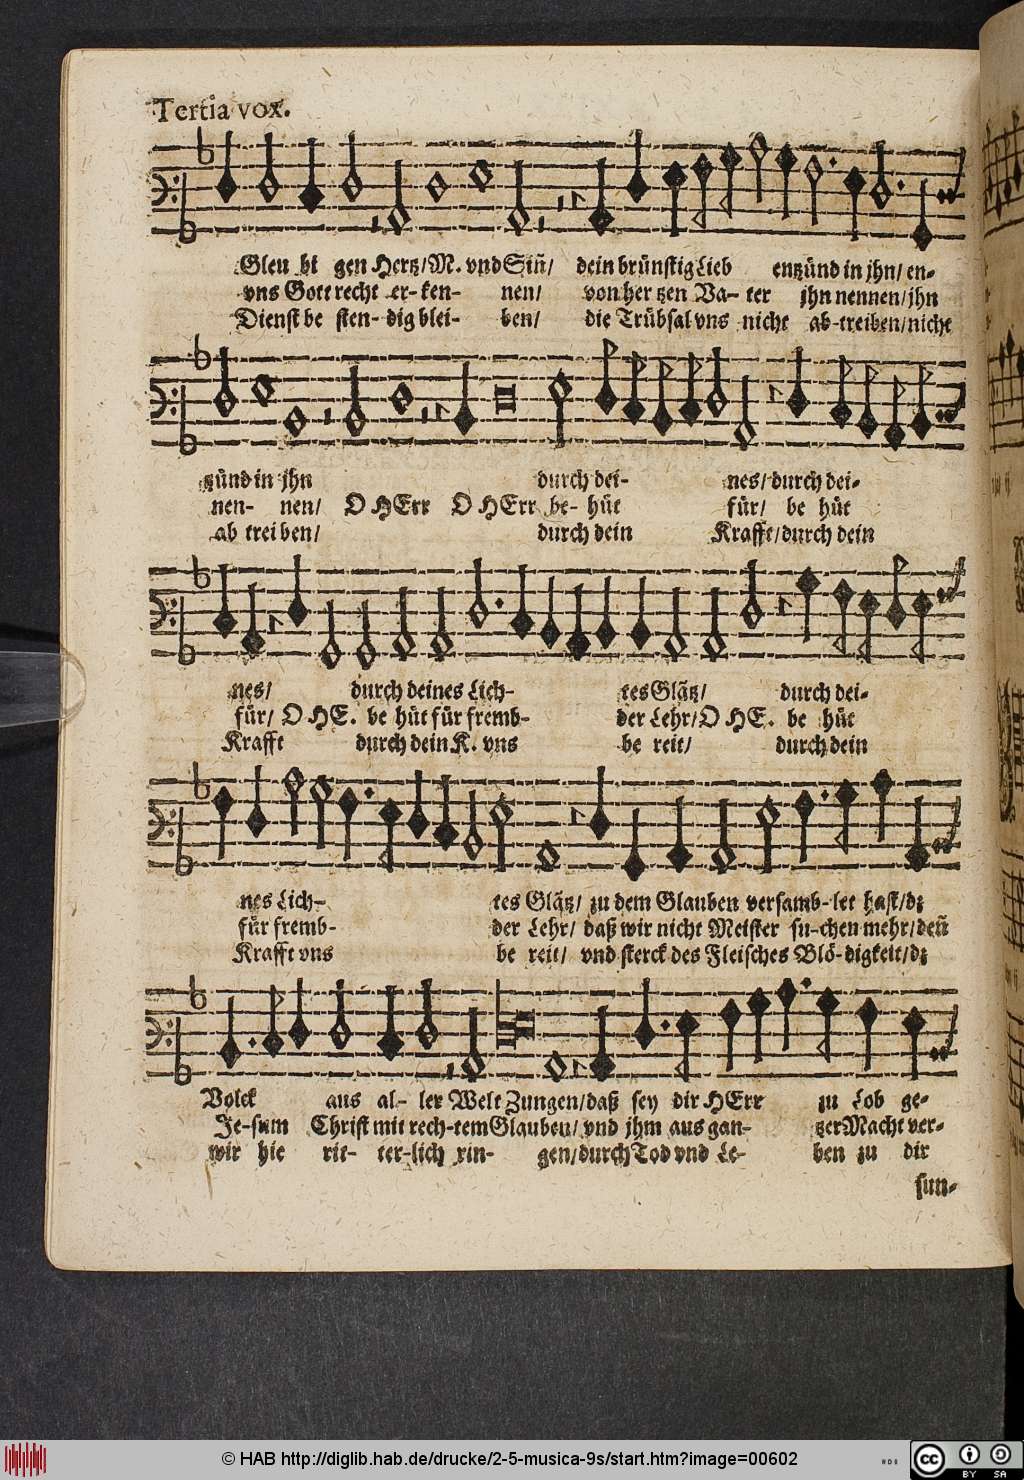 Tertia vox.
Gleu bi gen Hertz/M. vnd Siñ/ dein brünstig Lieb entzünd in jhn/ en-
vns Gott recht er- ken- nen/ von her tzen Va- ter jhn nennen/jhn
Dienst be sten- dig blei- ben/ die Trübsal vns nicht ab-treiben/nicht
zünd in jhn durch dei- nes/ durch dei-
nen- nen/ O HErr O HErr be- hüt für/ be hüt
ab trei ben/ durch dein Krafft/durch dein
nes/ durch deines Lich- tes Glätz/ durch dei-
für/ O HE. be hüt für fremb- der Lehr/O HE. be hüt
Krafft durch dein K. vns be reit/ durch dein
nes Lich- tes Glätz/ zu dem Glauben versamb-let hast/dz
für fremb- der Lehr/ daß wir nicht Meister su-chen mehr/deñ
Krafft vns be reit/ vnd sterck des Fleisches Blö-digkeit/dz
Volck aus al- ler Welt Zungen/daß sey dir HErr zu Lob ge-
Je-sum Christ mit rech-tem Glauben/ vnd jhm aus gan- tzer Macht ver-
wir hie rit- ter-lich rin- gen/durch Tod vnd Le- ben zu dir
sun-
© HAB http://diglib.hab.de/drucke/2-5-musica-9s/start.htm?image=00602
cc BY SA